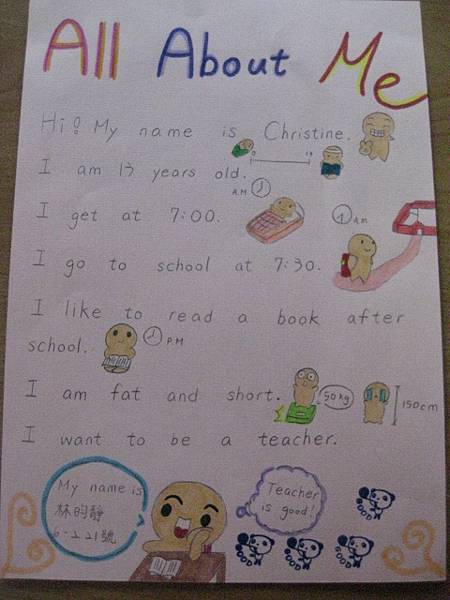 All About Me
Hi! My name is Christine.
I am 13 years old.
A.M
I get at 7:00.
A.M
I go to school at 7:30.
I like to read a book after
school.
P.M
I am fat and short.
50kg
150cm
I want to be a teacher.
My name is
林昀靜
21號
Teacher
is good!
GOOD
GOOD
GOOD
GOOD